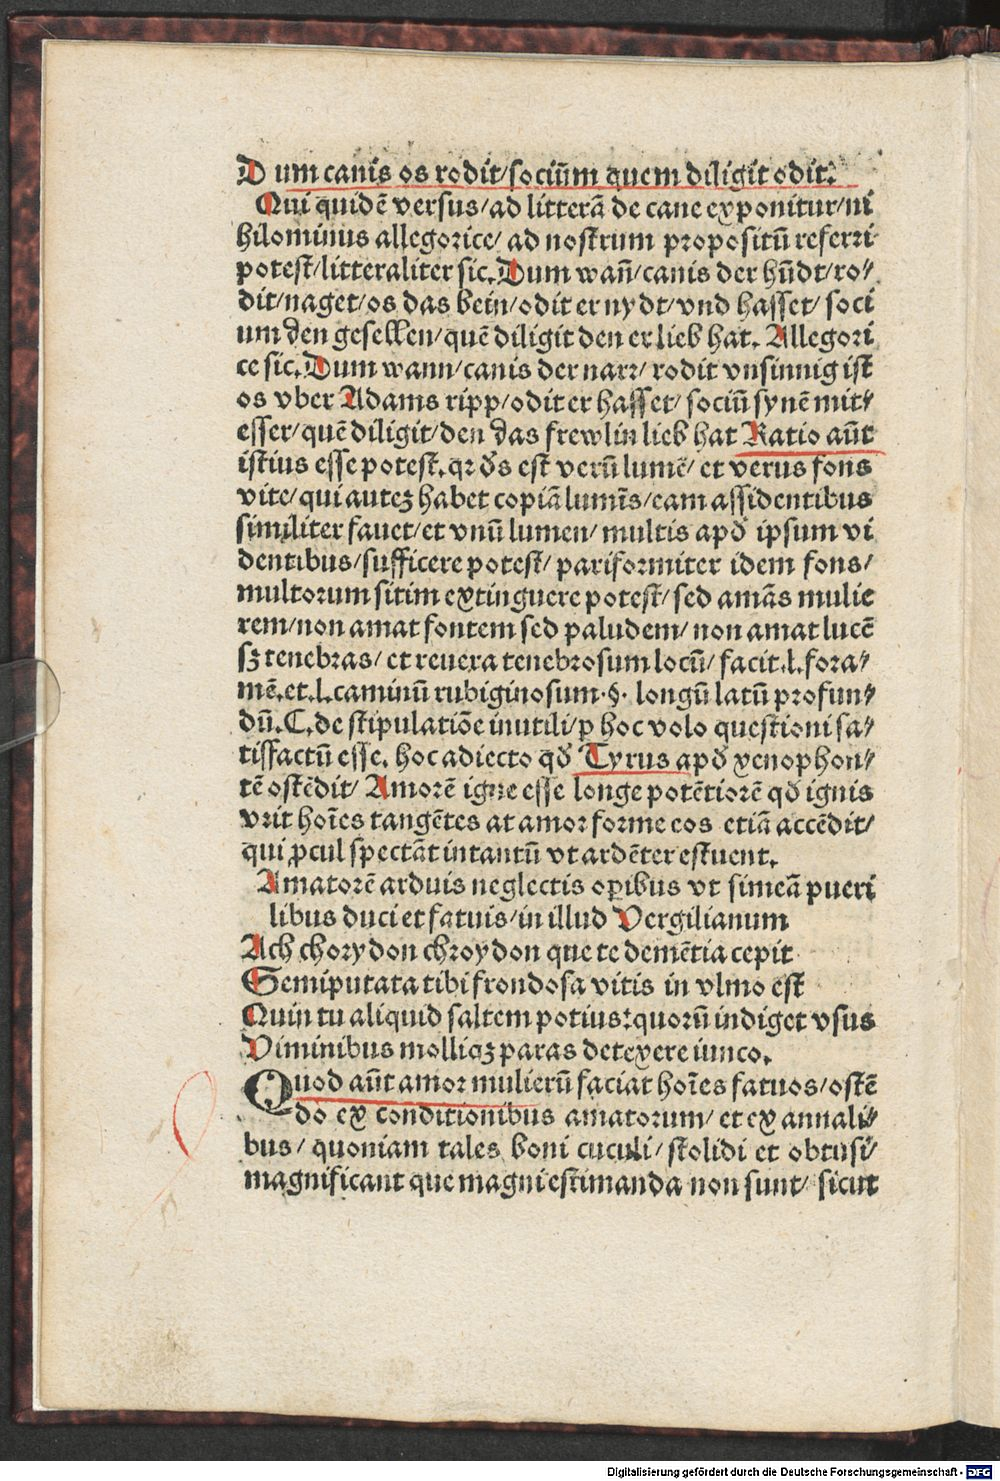 Dum canis os rodit/sociũm quem diligit odit.
Qui quidẽ versus/ad litterã de cane exponitur/ni
hilominus allegorice/ad nostrum propositũ referri
potest/litteraliter sic. Dum wañ/canis der hũdt/ro⸗
dit/naget/os das bein/odit er nydt/vnd hasset/soci
um den gesellen/quẽ diligit den er lieb hat. Allegori
ce sic. Dum wann/canis der narr/rodit vnsinnig ist
os vber Adams ripp/odit er hasset/sociũ synẽ mit⸗
esser/quẽ diligit/den das frewlin lieb hat Ratio aũt
istius esse potest. qꝛ ds̃ est verũ lumẽ/et verus fons
vite/qui auteꝫ habet copiã lumĩs/eam assidentibus
similiter fauet/et vnũ lumen/multis apđ ipsum vi
dentibus/sufficere potest/pariformiter idem fons/
multorum sitim extinguere potest/sed amãs mulie
rem/non amat fontem sed paludem/non amat lucẽ
sꝫ tenebras/et reuera tenebrosum locũ/facit.l.fora⸗
mẽ.et.l.caminũ rubiginosum.§.longũ latũ profun⸗
dũ.C.de stipulatiõe inutili/ꝑ hoc volo questioni sa⸗
tissfactũ esse. hoc adiecto qđ Tyrus apđ xenophon⸗
tẽ ostẽdit/Amorẽ igne esse longe potẽtiorẽ qđ ignis
vrit hoĩes tangẽtes at amor forme eos etiã accẽdit/
qui ꝓcul spectãt intantũ vt ardẽter estuent.
Amatorẽ arduis neglectis oꝑibus vt simeã pueri
libus duci et fatuis/in illud Vergilianum
Ach chorydon chroydon que te demẽtia cepit
Semiputata tibi frondosa vitis in vlmo est
Quin tu aliquid saltem potius:quorũ indiget vsus
Viminibus molliqꝫ paras detexere iunco.
Quod aũt amor mulierũ faciat hoĩes fatuos/ostẽ
do ex conditionibus amatorum/et ex annali⸗
bus/quoniam tales boni cuculi/stolidi et obtusi⸗
magnificant que magni estimanda non sunt/sicut
Digitalisierung gefördert durch die Deutsche Forschungsgemeinschaft - DFG